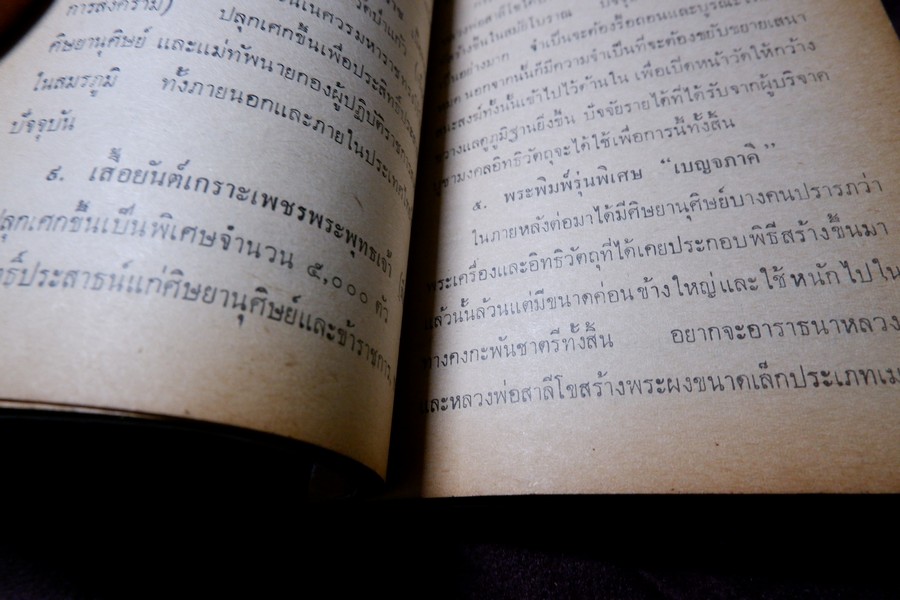 การสงคราม) ปลุกเศกขึ้นเพื่อประสิทธิ์
ศิษยานุศิษย์ และแม่ทัพนายกองผู้ปฏิบัติราชการ
ในสมรภูมิ ทั้งภายนอกและภายในประเทศ
ปัจจุบัน
๙. เสื้อยันต์เกราะเพชรพระพุทธเจ้า
ปลุกเศกขึ้นเป็นพิเศษจำนวน ๕,๐๐๐ ตัว
ประสาธน์แก่ศิษยานุศิษย์และข้าราชการ
จำเป็นจะต้องรื้อถอนและบูรณะ
นอกจากนั้นก็มีความจำเป็นที่จะต้องขยับขยายเสนา
สงฆ์ทั้งนั้นเข้าไปไว้ด้านใน เพื่อเปิดหน้าวัดให้กว้าง
ขวางแลดูภูมิฐานยิ่งขึ้น ปัจจัยรายได้ที่ได้รับจากผู้บริจาค
บูชามงคลอิทธิวัตถุจะได้ใช้เพื่อการนี้ทั้งสิ้น
๕. พระพิมพ์รุ่นพิเศษ “เบญจภาคี”
ในภายหลังต่อมาได้มีศิษยานุศิษย์บางคนปรารภว่า
พระเครื่องและอิทธิวัตถุที่ได้เคยประกอบพิธีสร้างขึ้นมา
แล้วนั้นล้วนแต่มีขนาดค่อนข้างใหญ่และใช้หนักไปใน
ทางคงกะพันชาตรีทั้งสิ้น อยากจะอาราธนาหลวง
และหลวงพ่อสาลีโขสร้างพระผงขนาดเล็กประเภทเม